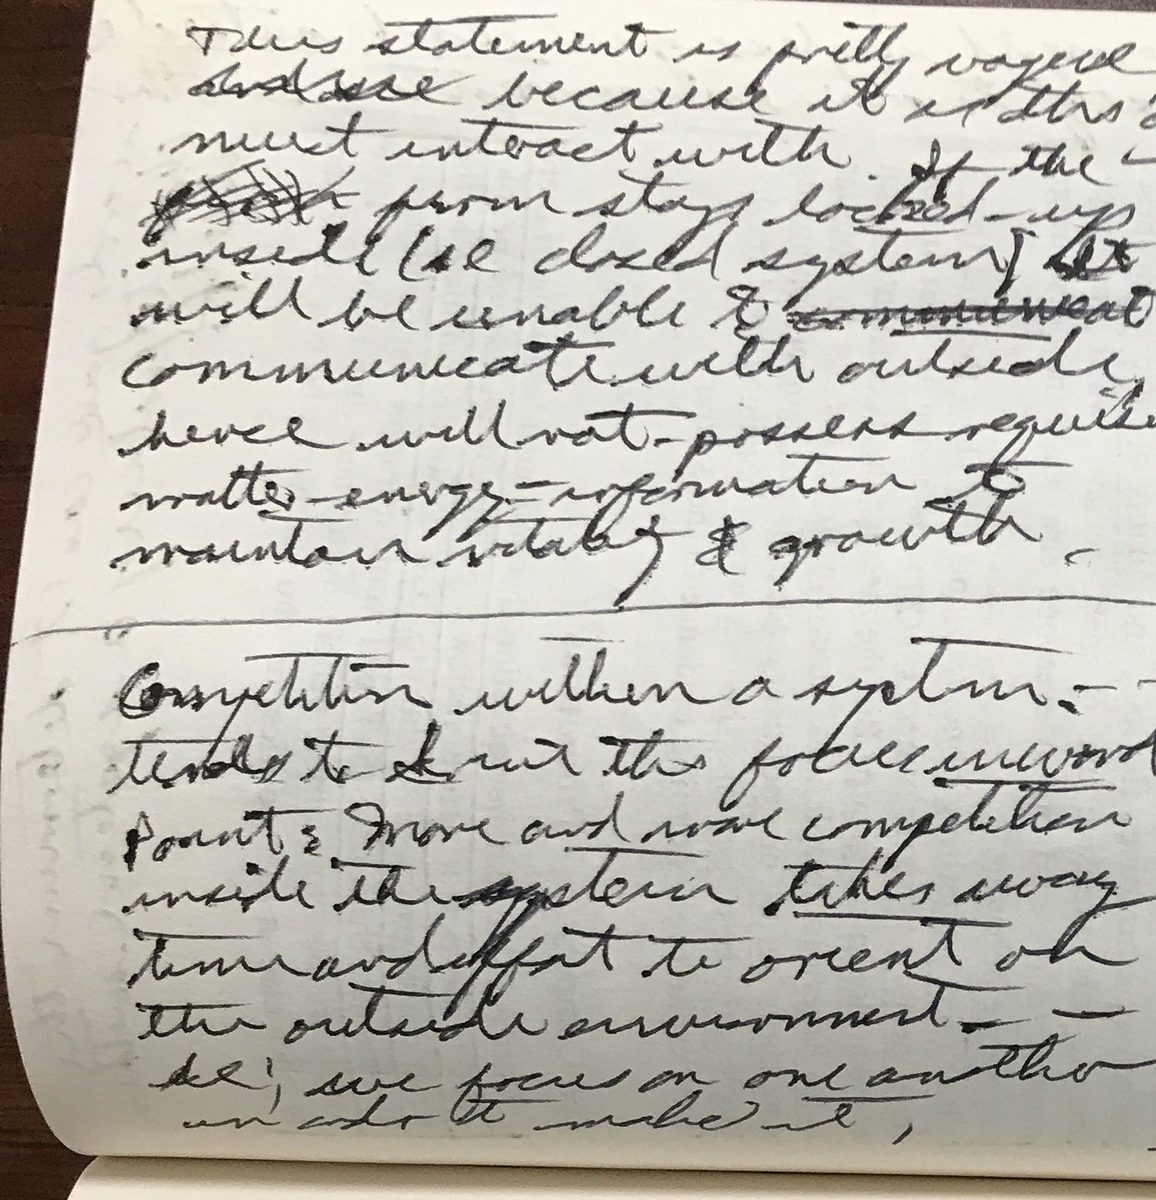 This statement is pretty vague
because it is this
must interact with. If the
firm stays locked-up
inside (ie closed system) it
will be unable to communicate
communicate with outside,
hence will not possess requisite
matter-energy-information to
maintain vitality & growth.
Competition within a system --
tends to the focus inward
Point: More and more competition
inside the system takes away
time and effort to orient on
the outside environment --
ie; we focus on one another
in order to make it,